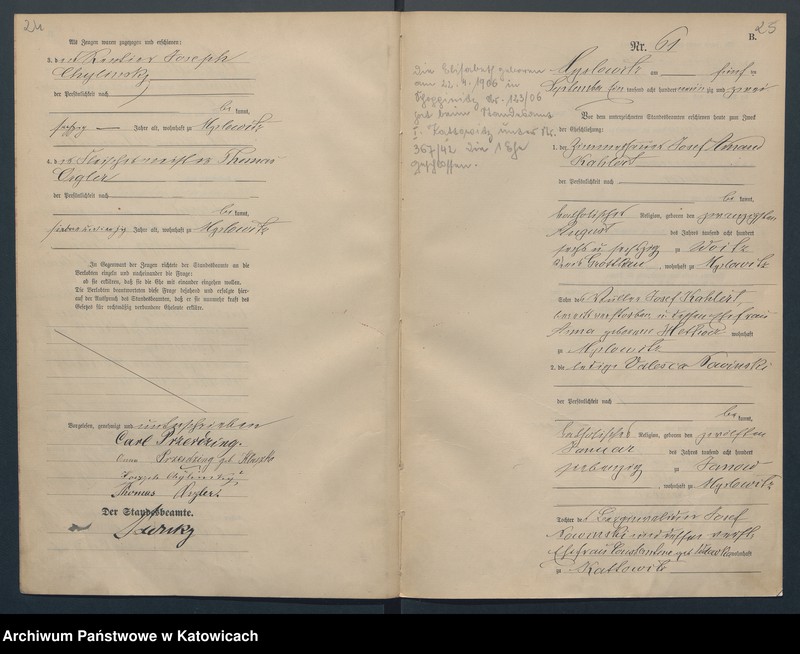 24
Als Zeugen waren zugezogen und erschienen:
3. der Rentier Joseph
Chylinsky
der Persönlichkeit nach
be kannt,
sechzig Jahre alt, wohnhaft zu Myslowitz
4. der Fleischermeister Thomas
Ozgler
der Persönlichkeit nach
be kannt,
Jahre alt, wohnhaft zu Myslowitz
In Gegenwart der Zeugen richtete der Standesbeamte an die
Verlobten einzeln und nacheinander die Frage:
ob sie erklären, daß sie die Ehe mit einander eingehen wollen.
Die Verlobten beantworteten diese Frage bejahend und erfolgte hier-
auf der Ausspruch des Standesbeamten, daß er sie nunmehr kraft des
Gesetzes für rechtmäßig verbundene Eheleute erkläre.
Vorgelesen, genehmigt und unterschrieben
Carl Przerdzing.
geb
Thomas
Der Standesbeamte.
25
B.
Nr. 61
Myslowitz am fünf ten
September tausend acht hundert neun zig und zwei
Vor dem unterzeichneten Standesbeamten erschienen heute zum Zweck
der Eheschließung:
1. der Josef Amand
Kahlert
der Persönlichkeit nach
be kannt,
katholischer Religion, geboren den zwanzigsten
August des Jahres tausend acht hundert
sechs u sechzig zu Woitz
Kreis Grottkau, wohnhaft zu Myslowitz
Sohn des Müller Josef Kahlert,
bereits verstorben u dessen Ehefrau
Anna geborene wohnhaft
zu Myslowitz
2. die ledige Valesca Nowinski
der Persönlichkeit nach
be kannt,
katholischer Religion, geboren den zwölften
Januar des Jahres tausend acht hundert
siebenzig zu Janow
, wohnhaft zu Myslowitz
Tochter des Josef
Nowinski und dessen
Ehefrau Constantine geb wohnhaft
zu Kattowitz
Die Elisabeth geboren
am 22.4.1906 in
Schoppinitz Nr. 123/06
hat beim Standesamt
I. Kattowitz unter Nr.
367/42 die 1 Ehe
geschlossen.
Archiwum Państwowe w Katowicach